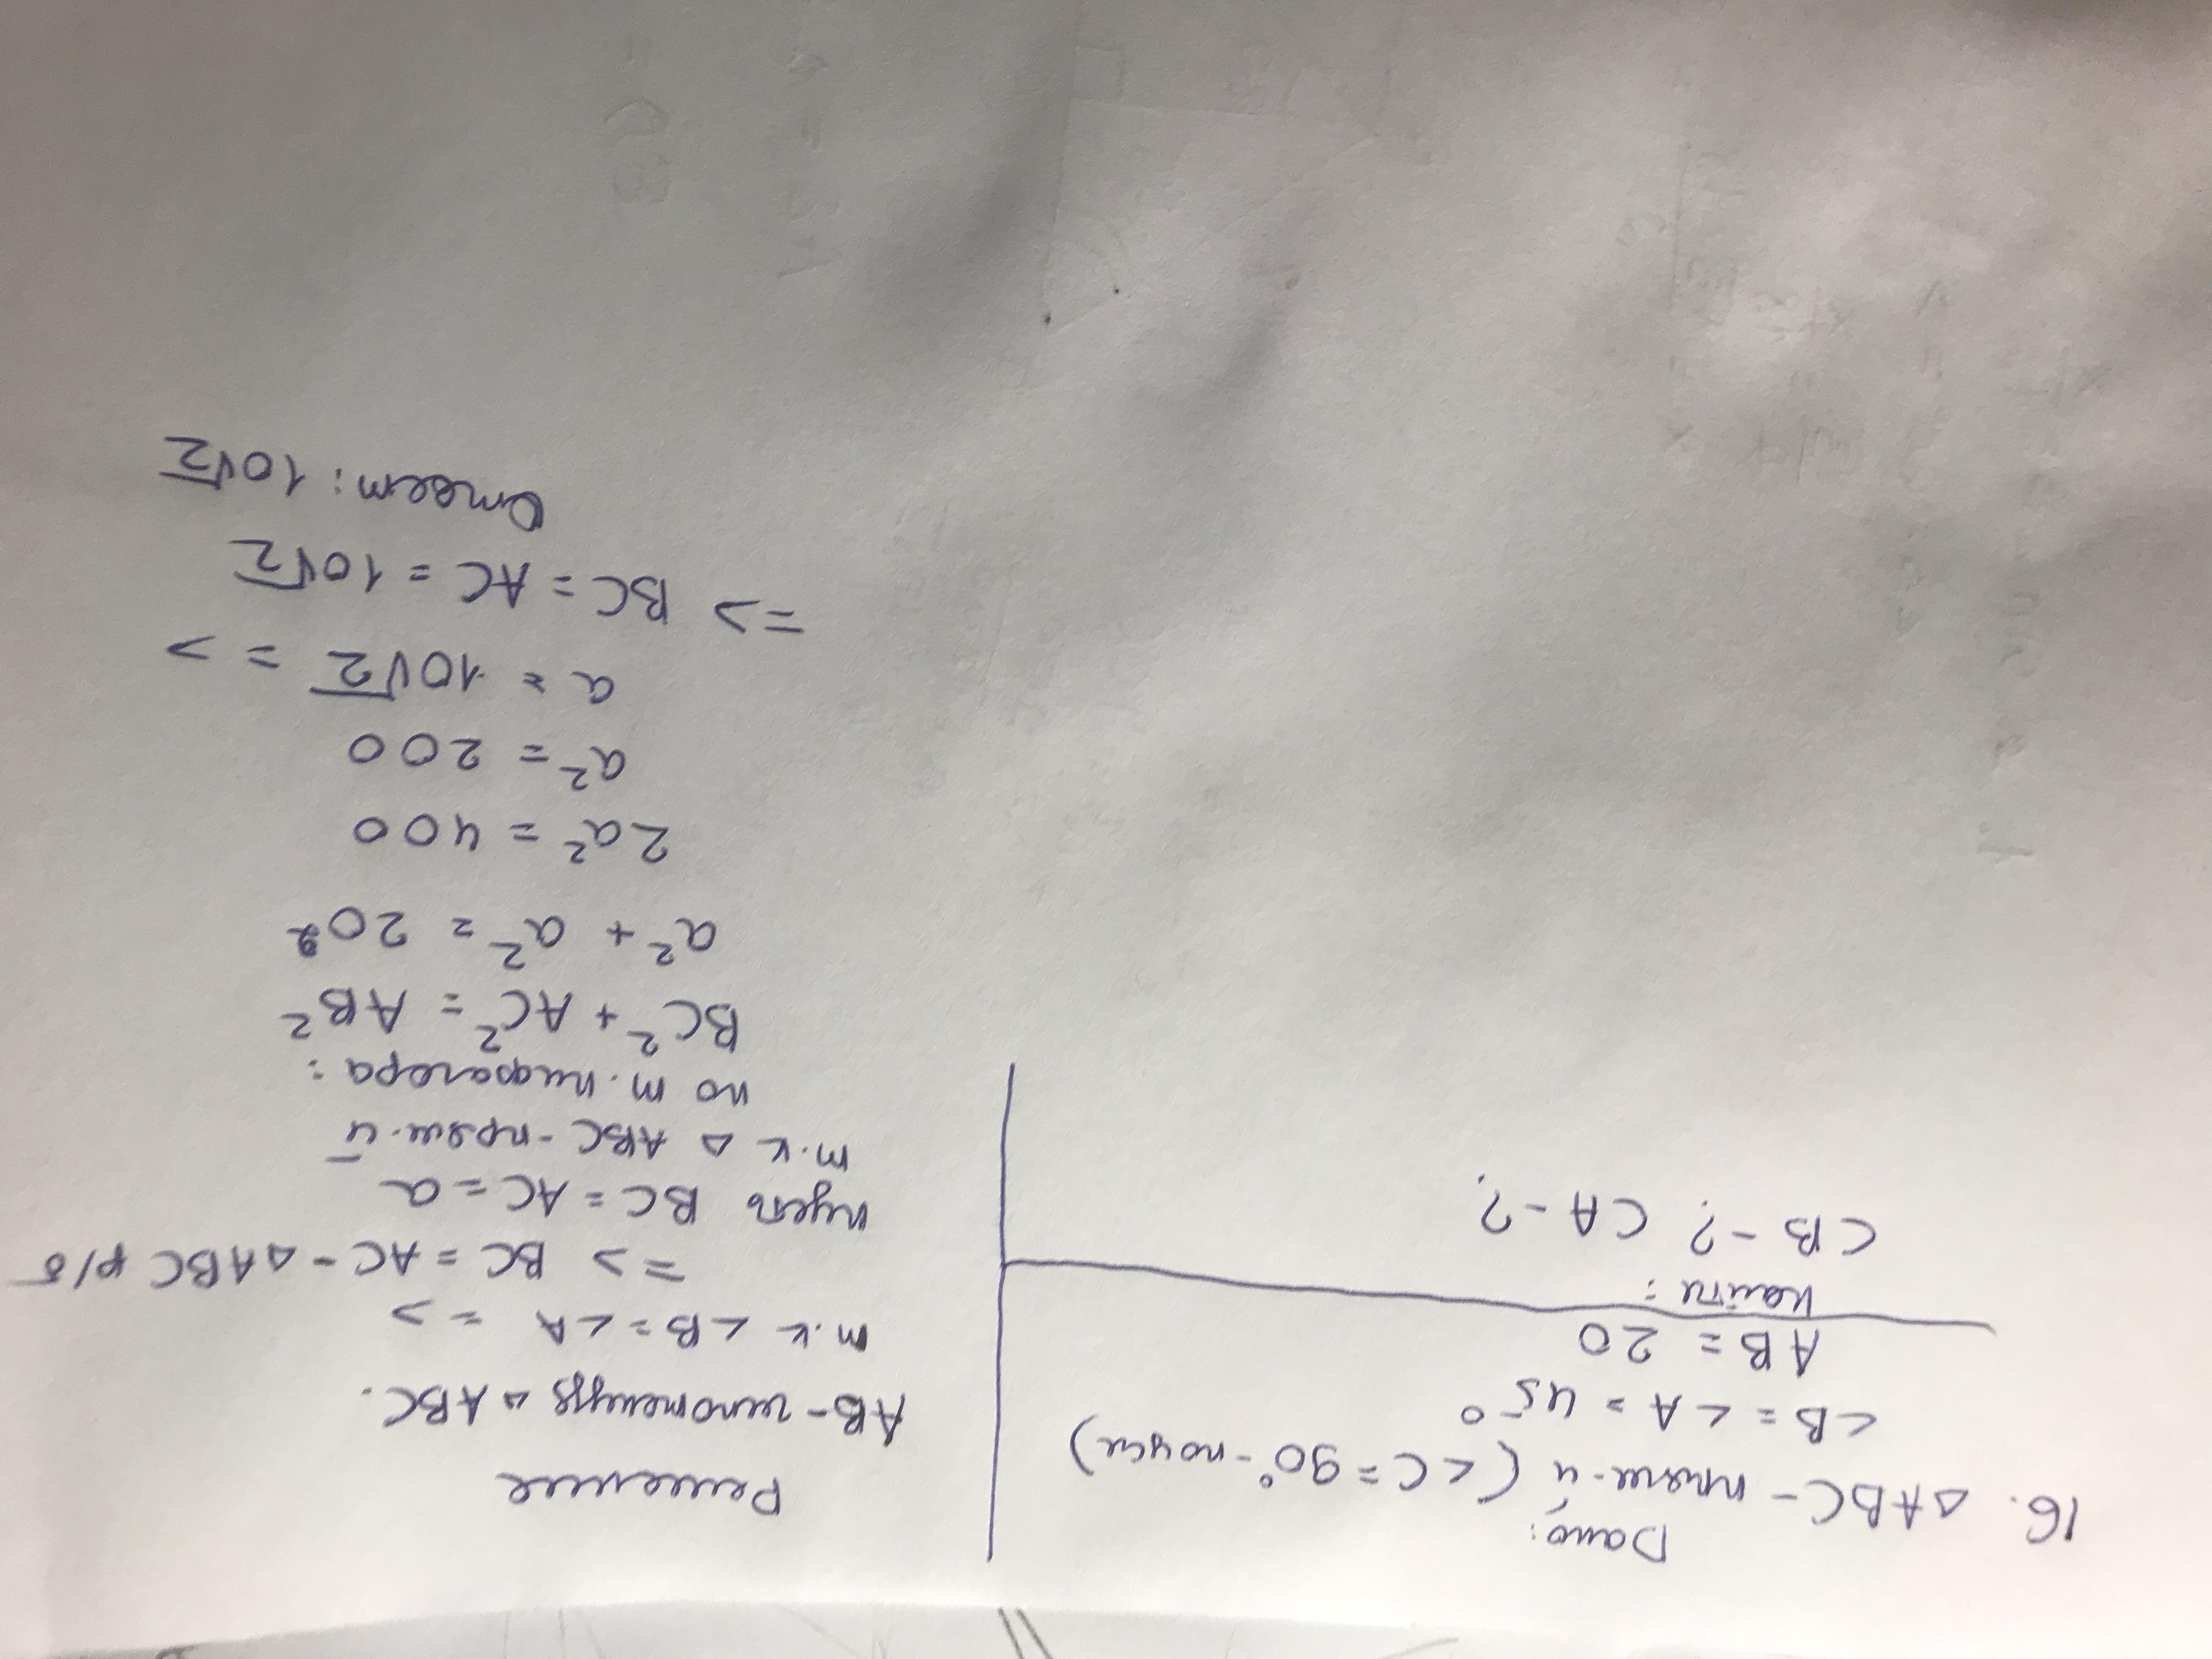 Дано:
16. △ABC - прям-й (∠C = 90° - по усл)
∠B = ∠A = 45°
AB = 20
Найти:
CB - ? CA - ?
Решение
AB - гипотенуза △ABC.
т.к ∠B = ∠A =>
=> BC = AC - △ABC р/б
пусть BC = AC = a
т.к △ ABC - прям-й
по т. пифагора:
BC² + AC² = AB²
a² + a² = 20²
2a² = 400
a² = 200
a = 10√2 =>
=> BC = AC = 10√2
Ответ: 10√2